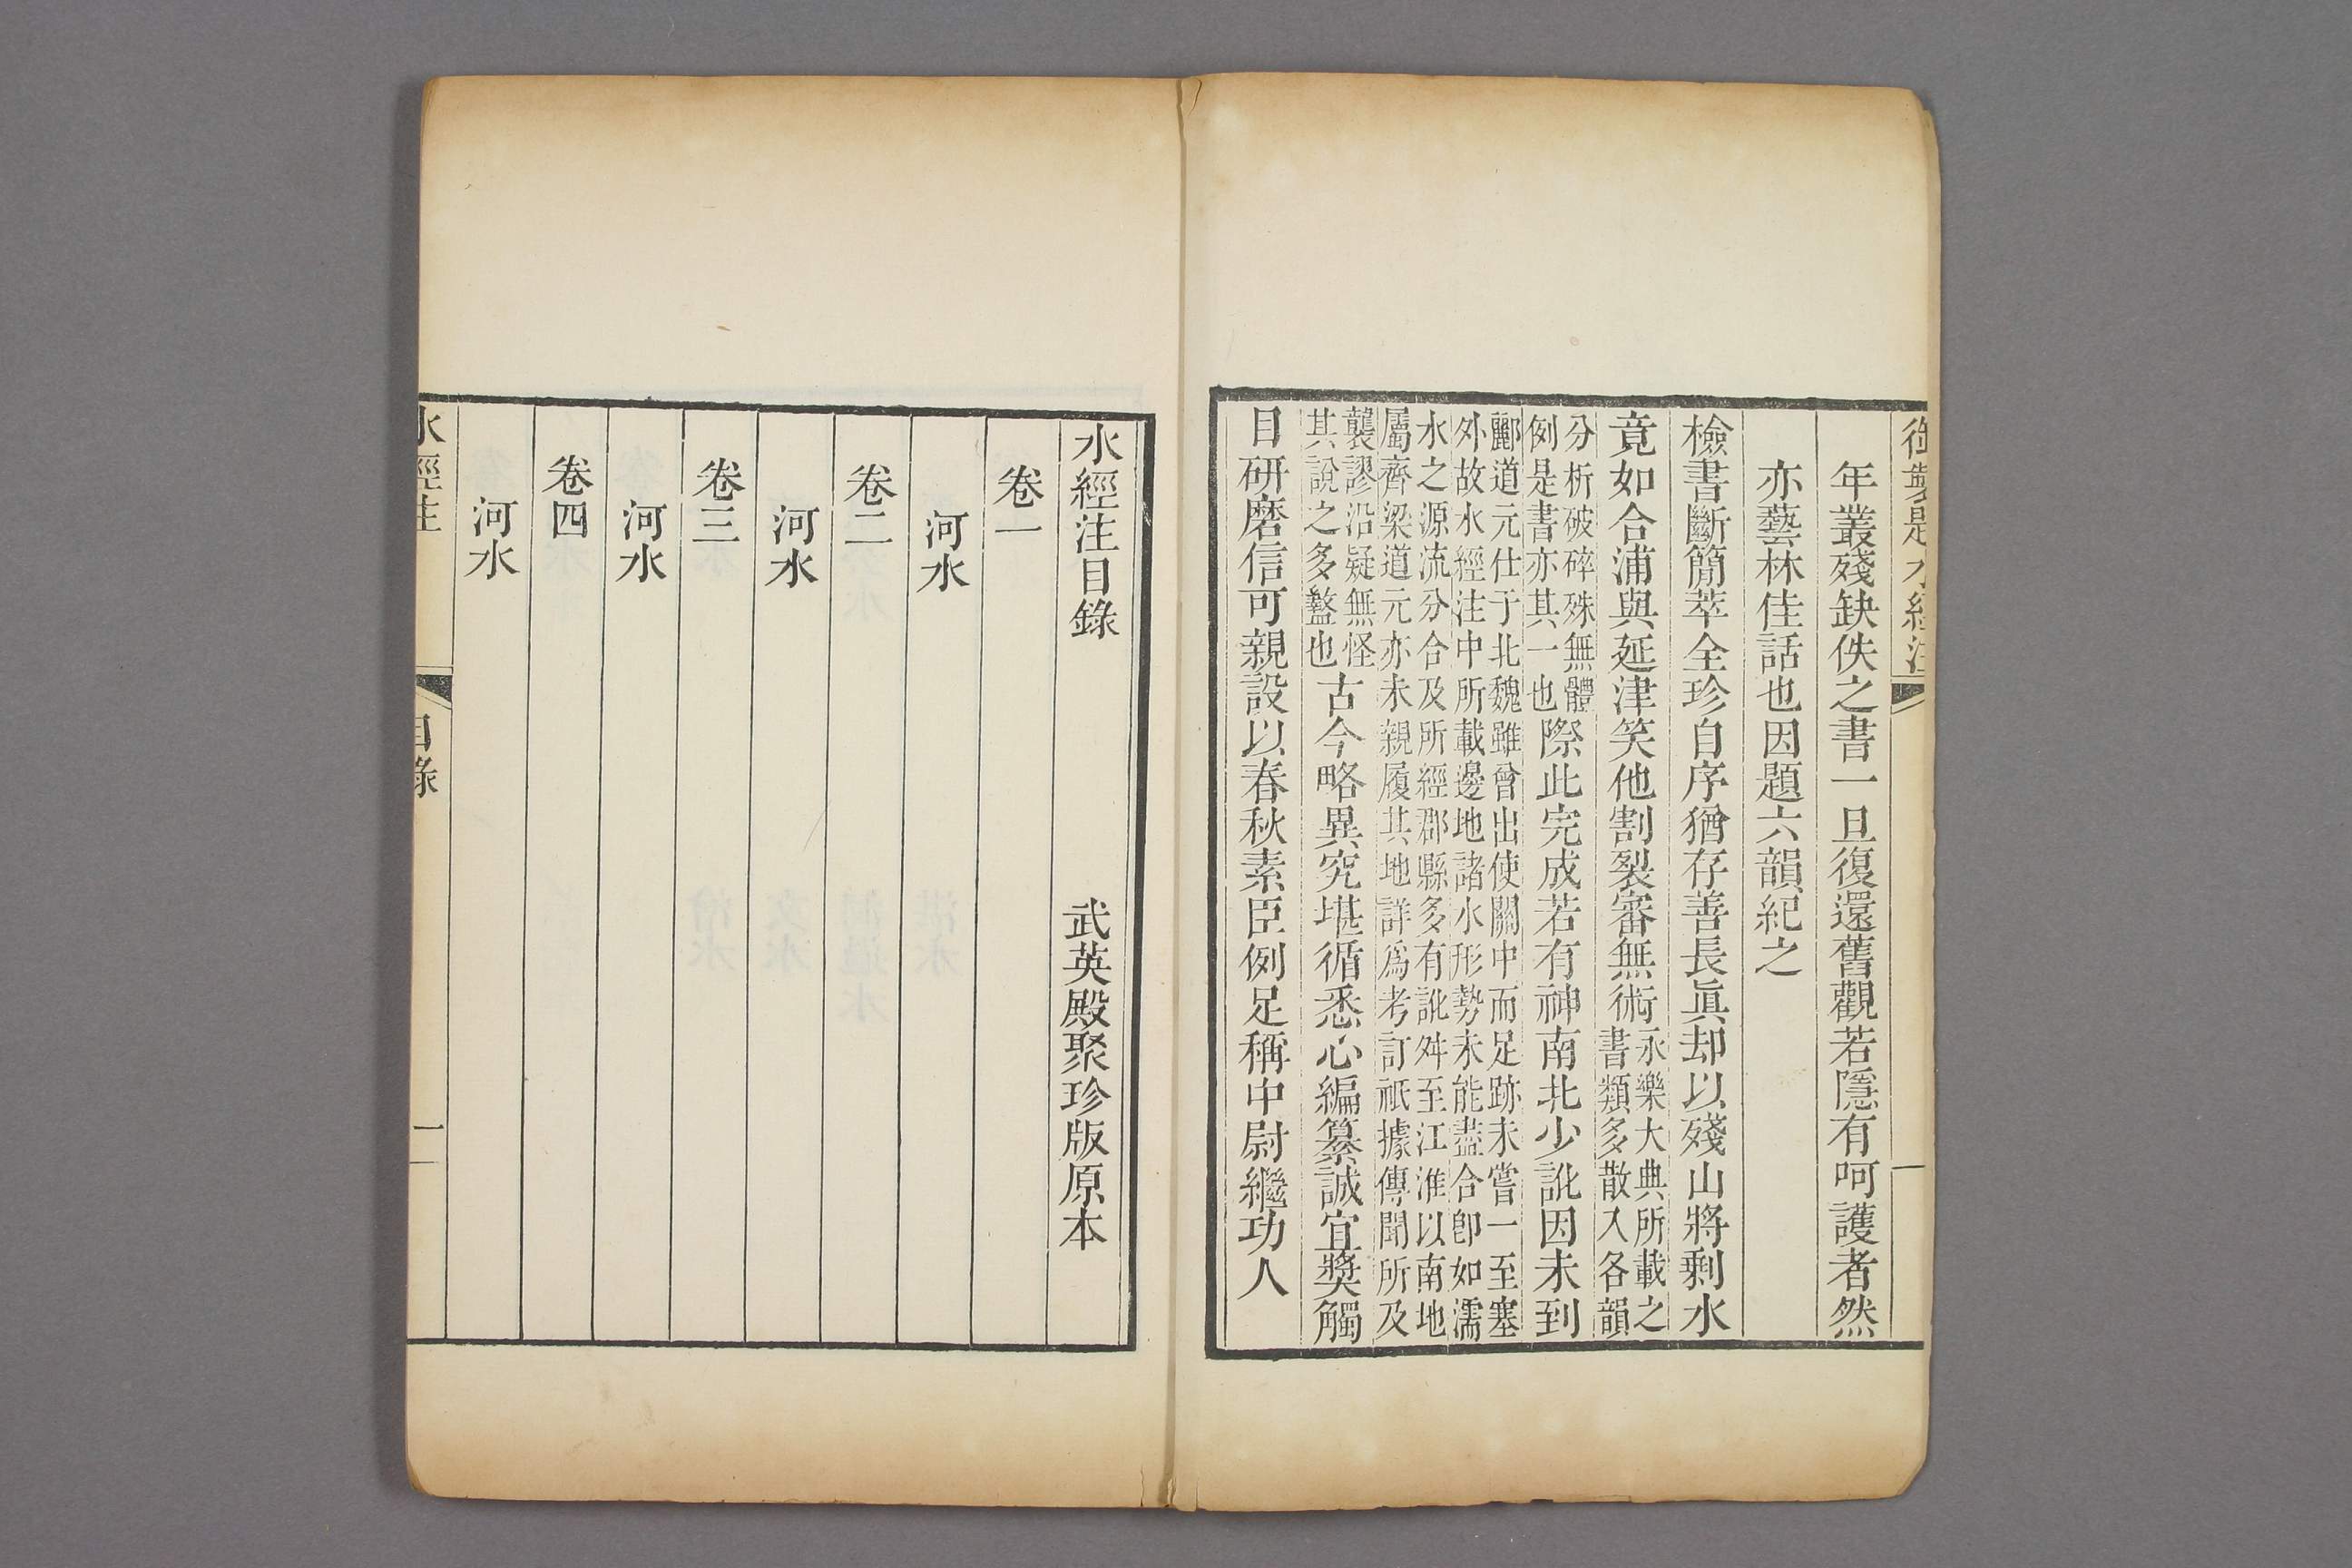 御製題水經注
一
年叢殘缺佚之書一旦復還舊觀若隱有呵護者然
亦藝林佳話也因題六韻紀之
檢書斷簡萃全珍自序猶存善長眞却以殘山將剩水
竟如合浦與延津笑他割裂審無術永樂大典所載之書類多散入各韻
分析破碎殊無體例是書亦其一也際此完成若有神南北少訛因未到
酈道元仕于北魏雖曾出使關中而足跡未嘗一至塞外故水經注中所載邊地諸水形勢未能盡合卽如濡
水之源流分合及所經郡縣多有訛舛至江淮以南地屬齊梁道元亦未親履其地詳爲考訂祇據傳聞所及
襲謬沿疑無怪其說之多盭也古今略異究堪循悉心編纂誠宜獎觸
目研磨信可親設以春秋素臣例足稱中尉繼功人
水經注目錄
武英殿聚珍版原本
卷一
河水
卷二
河水
卷三
河水
卷四
河水
水經注
目錄
一